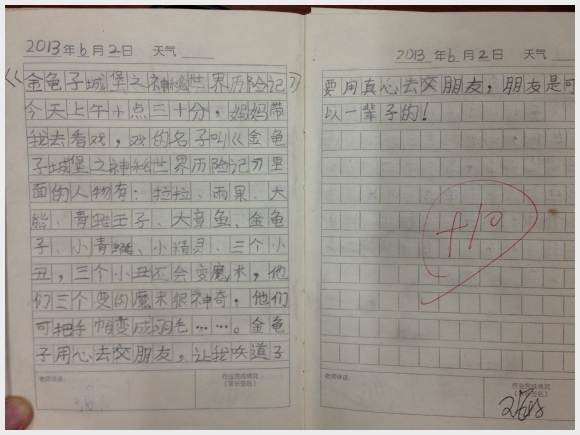 2013年6月2日 天气
《金龟子城堡之神秘世界历险记》
今天上午十点三十分，妈妈带
我去看戏，戏的名字叫《金龟
子城堡之神秘世界历险记》里
面的人物有：拉拉、雨果、大
熊、青蛙王子、大章鱼、金龟
子、小青蛙、小精灵、三个小
丑，三个小丑还会变魔术，他
们三个变的魔术很神奇，他们
可把手帕变成羽毛……。金龟
子用心去交朋友，让我知道了
老师评语：
作业完成情况
（家长签名）
2013年6月2日 天气
要用真心去交朋友，朋友是可
以一辈子的！
+10
老师评语：
作业完成情况
（家长签名）